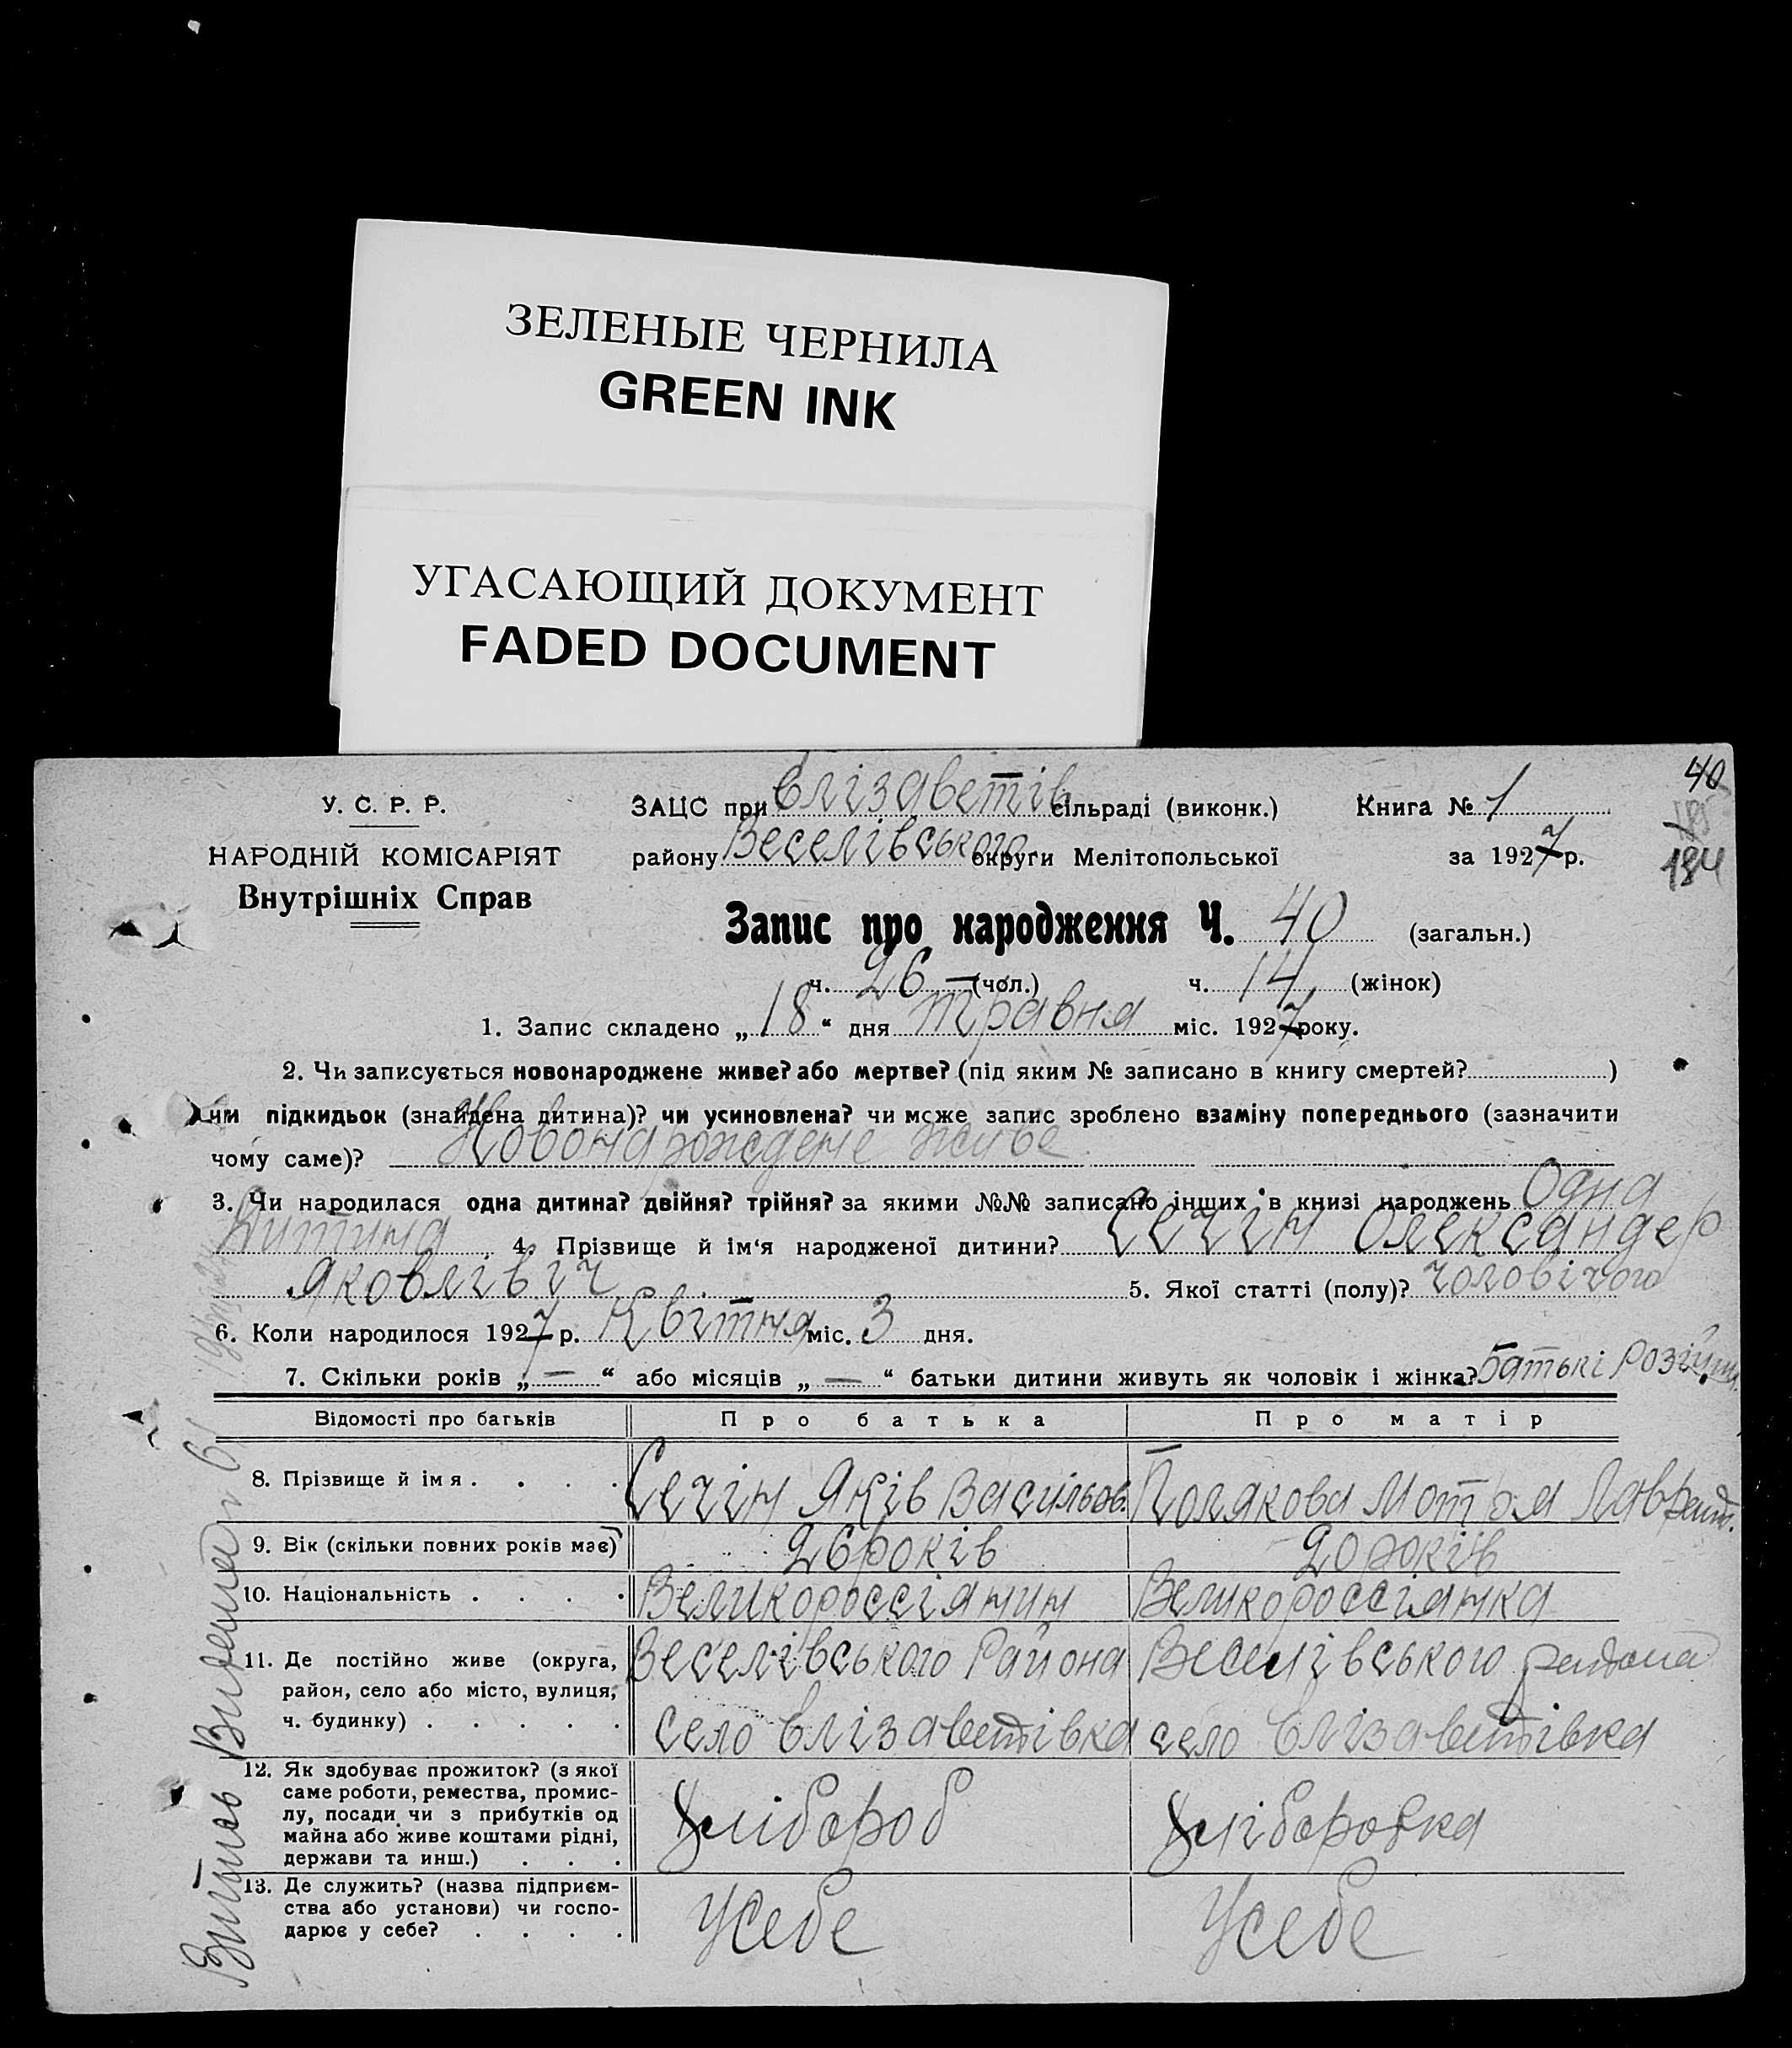 ЗЕЛЕНЫЕ ЧЕРНИЛА
GREEN INK
УГАСАЮЩИЙ ДОКУМЕНТ
FADED DOCUMENT
40
184
У. С. Р. Р.
НАРОДНІЙ КОМІСАРІЯТ
Внутрішніх Справ
ЗАЦС при Єлізаветів сільраді (виконк.) Книга № 1
району Веселівського округи Мелітопольської за 1927 р.
Запис про народження Ч. 40 (загальн.)
ч. 26 — (чол.) ч. 14 (жінок)
1. Запис складено „18“ дня травня міс. 1927 року.
2. Чи записується новонароджене живе? або мертве? (під яким № записано в книгу смертей? )
чи підкидьок (знайдена дитина)? чи усиновлена? чи може запис зроблено взаміну попереднього (зазначити
чому саме)? Новонарождене живе
3. Чи народилася одна дитина? двійня? трійня? за якими №№ записано інших в книзі народжень Одна
дитина 4. Прізвище й ім‘я народженої дитини? Сечін Олександер
Яковлівіч 5. Якої статті (полу)? чоловічого
6. Коли народилося 1927 р. Квітня міс. 3 дня.
7. Скільки років „—“ або місяців „—“ батьки дитини живуть як чоловік і жінка? Батькі
Відомості про батьків Про батька Про матір
8. Прізвище й імя . . . . Сечін Яків Васильов. Полякова Мотря Лаврент.
9. Вік (скільки повних років має) 26 років 20 років
10. Національність . . . . Великороссіянин Великороссіянка
11. Де постійно живе (округа, Веселівського Района Веселівського района
район, село або місто, вулиця,
ч. будинку) . . . . . село Єлізаветівка село Єлізаветівка
12. Як здобуває прожиток? (з якої
саме роботи, ремества, промис-
лу, посади чи з прибутків од
майна або живе коштами рідні, Хлібороб Хліборобка
держави та инш.) . . .
13. Де служить? (назва підприєм-
ства або установи) чи госпо- Усебе Усебе
дарює у себе? . . . .